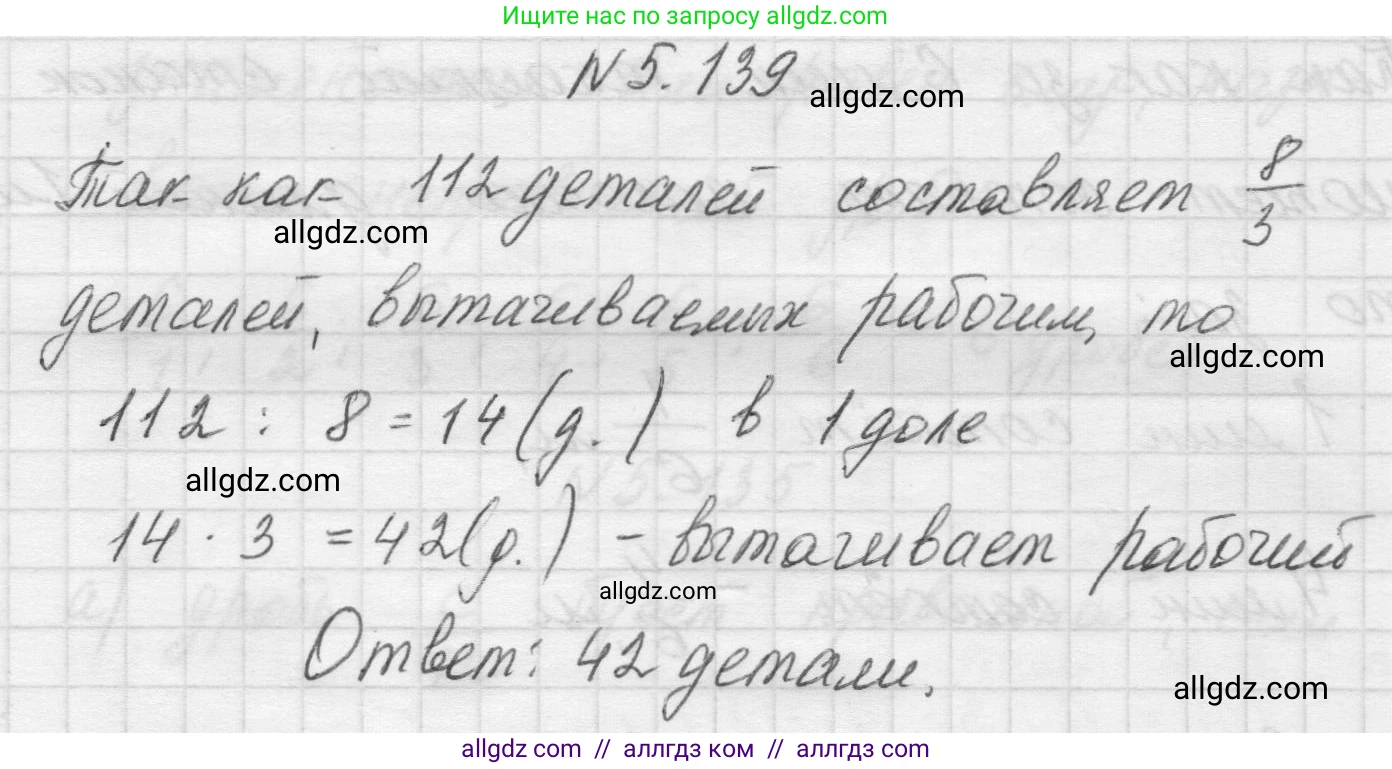 Ищите нас по запросу allgdz.com
N 5.139
allgdz.com
Так как 112 деталей составляет 8/3
allgdz.com
деталей, вытачиваемых рабочим, то
allgdz.com
112 : 8 = 14 (д.) в 1 доле
allgdz.com
14 · 3 = 42 (д.) – вытачивает рабочий
allgdz.com
Ответ: 42 детали.
allgdz.com
allgdz com // аллгдз ком // аллгдз com